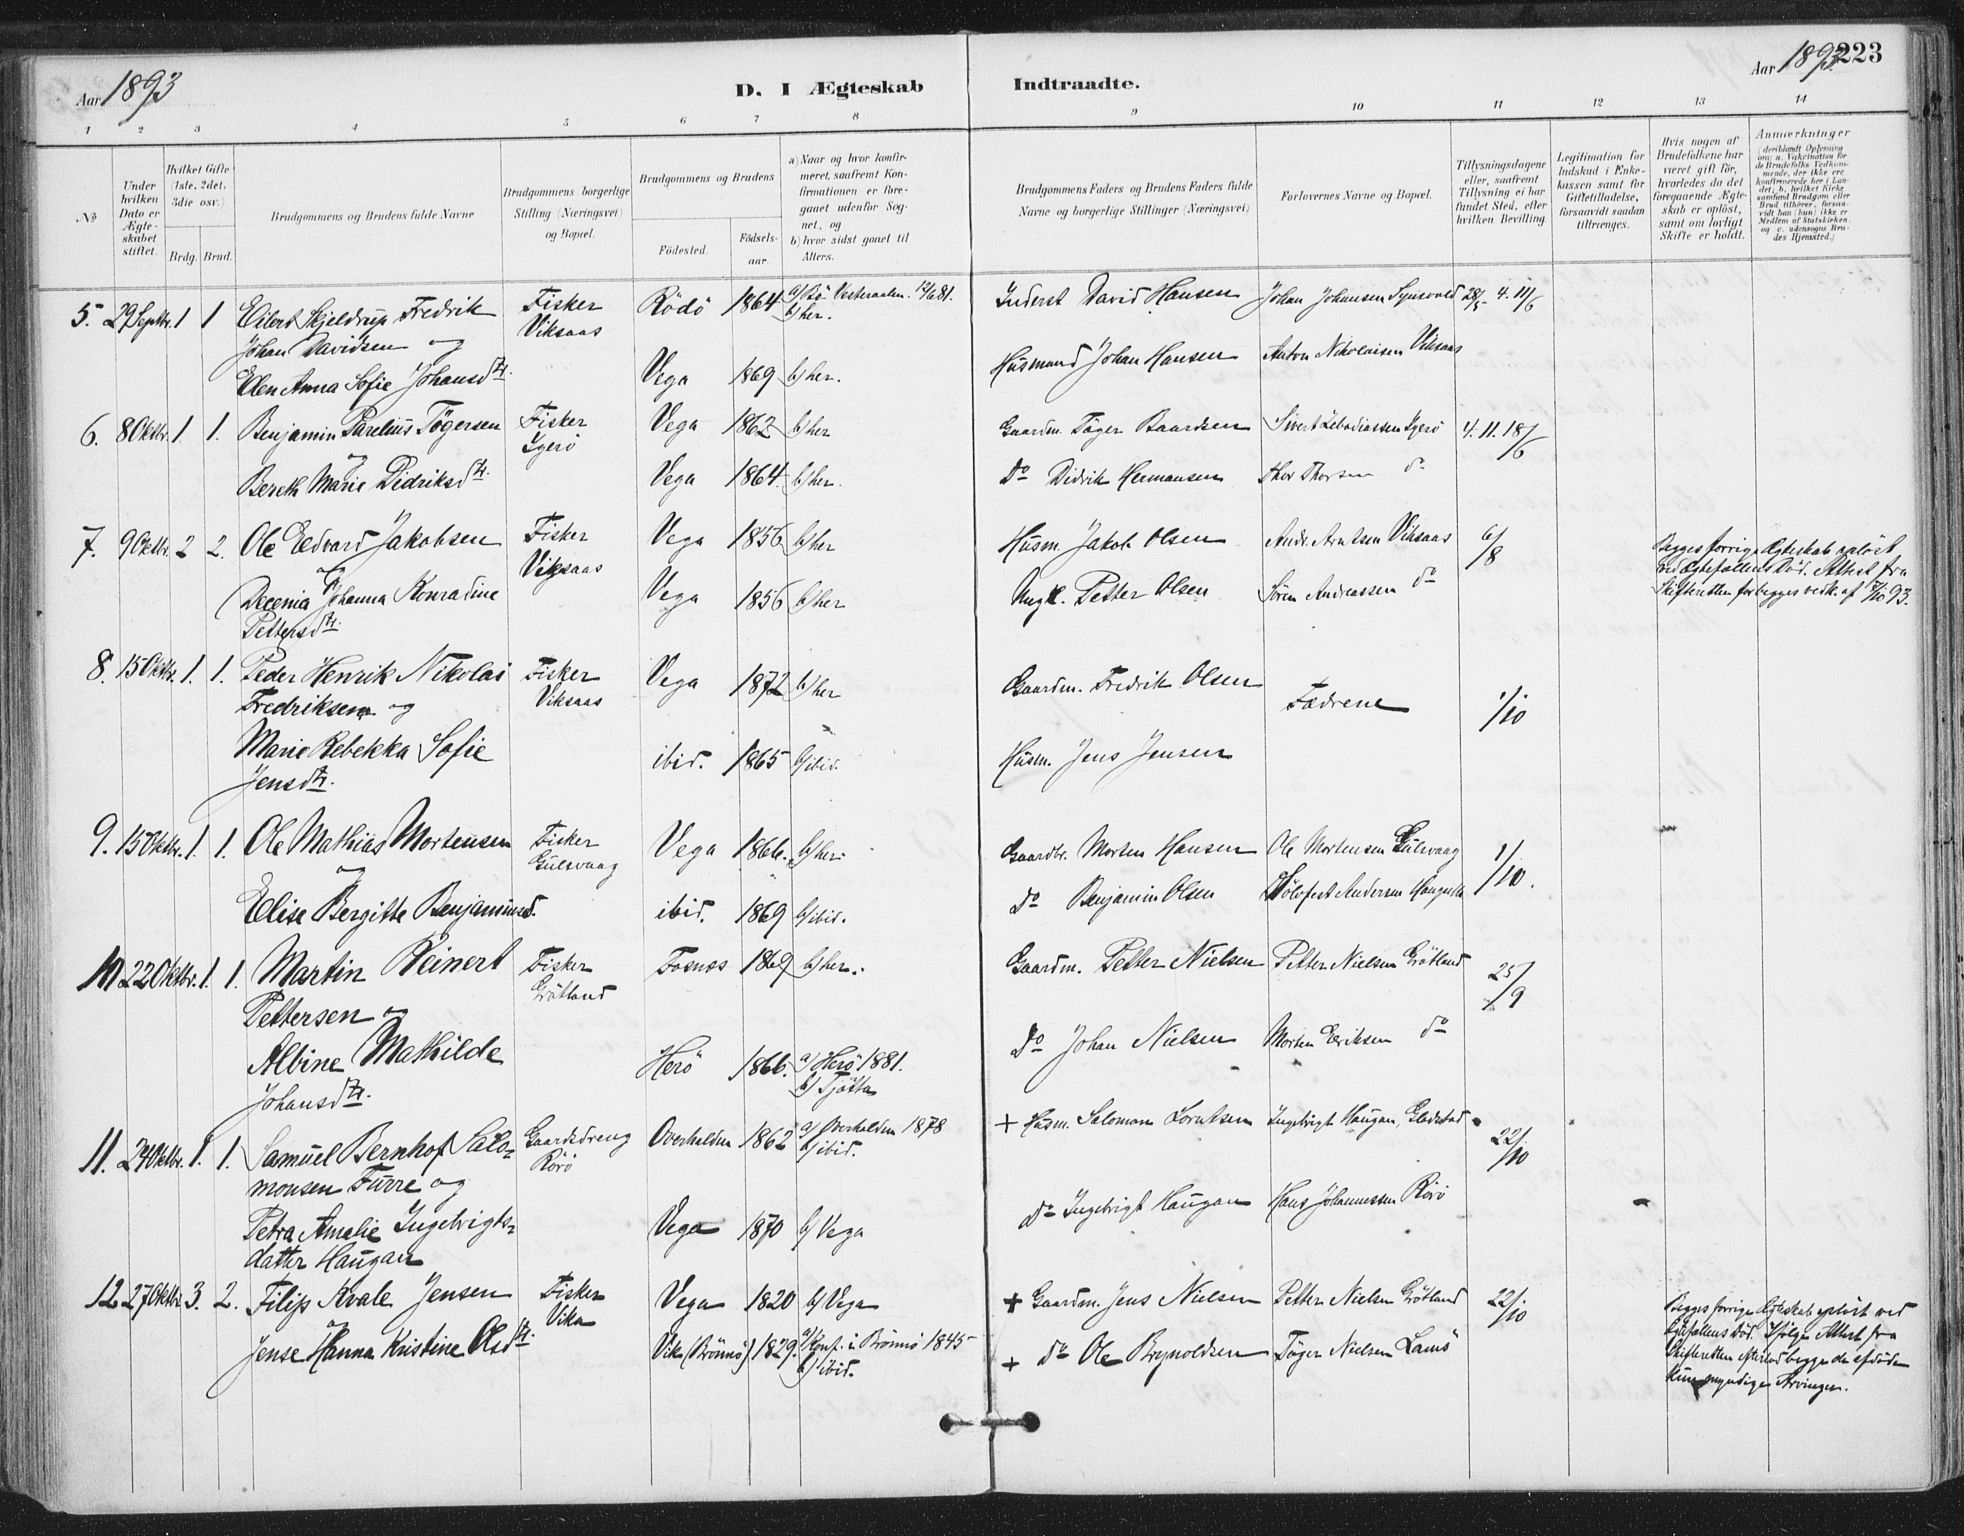 Aar 1893
D. I Ægteskab
Indtraadte.
Aar 1893 223
1 2 3 4 5 6 7 8 9 10 11 12 13 14
No
Under hvilken Dato er Ægteskabet stiftet.
Hvilket Gifte (1ste, 2det, 3die osv.)
Brdg. Brud.
Brudgommens og Brudens fulde Navne
Brudgommens borgerlige Stilling (Næringsvei) og Bopæl.
Brudgommens og Brudens
Fødested.
Fødselsaar.
a) Naar og hvor konfirmeret, saafremt Konfirmationen er foregaaet udenfor Sognet, og
b) hvor sidst gaaet til Alters.
Brudgommens Faders og Brudens Faders fulde Navne og borgerlige Stillinger (Næringsvei)
Forlovernes Navne og Bopæl.
Tillysningsdagene eller, saafremt Tillysning ei har fundet Sted, efter hvilken Bevilling.
Legitimation for Indskud i Enkekassen samt for Giftetilladelse, forsaavidt saadan tiltrænges.
Hvis nogen af Brudefolkene har været gift før, hvorledes da det foregaaende Ægteskab er opløst, samt om lovligt Skifte er holdt.
Anmærkninger
(deriblandt Oplysning om: a. Vakcination for de Brudefolks Vedkommende, der ikke ere konfirmerede her i Landet; b. hvilket Kirkesamfund Brudgom eller Brud tilhører, forsaavidt han (hun) ikke er Medlem af Statskirken, og c. udensogns Brudes Hjemsted.)
5. 29 Septbr. 1 1 Eilert Skjeldrup Fredrik Fisker Rödö 1864 a) Bö Vesteraalen 12/6 81. Inderst David Hansen Johan Johansen 28/5 4. 11/6
Johan Davidsen og Viksaas b) her.
Elen Anna Sofie Johansdtr. Vega 1869 b) her. Husmand Johan Hansen Anton Nikolaisen Viksaas
6. 8 Oktbr. 1. 1. Benjamin Parelius Tögersen Fisker Vega 1862 b) her Gaardm. Töger Baardsen Sivert Zebediassen Ygerö 4. 11. 18/6
og Ygerö
Bereth Marie Didriksdtr. Vega 1864. b) her. Do Didrik Hermansen Thor Thorsen do
7. 9 Oktbr. 2 2. Ole Edvard Jakobsen Fisker Vega 1856 b) her Husm. Jakob Olsen Andr. Arntsen Viksaas 6/8 Begges forrige Ægteskab opløst
og Viksaas ved Ægtefællens Död. Attest fra
Decenia Johanna Konradine Vega 1856 b) her Ungk. Petter Olsen Sören Andreassen do Skifteretten for begges vedk. af 93.
Pettersdtr.
8. 15 Oktbr. 1. 1. Peder Henrik Nikolai Fisker Vega 1872 b) her Gaardm. Fredrik Olsen Fædrene 1/10
Fredriksen og Viksaas
Marie Rebekka Sofie ibid. 1865 b) ibid. Husm. Jens Jensen
Jensdtr.
9. 15 Oktbr. 1. 1. Ole Mathias Mortensen Fisker Vega 1866. b) her. Gaardbr. Morten Hansen Ole Mortensen Gulsvaag 1/10.
og Gulsvaag
Elise Bergitte Benjaminsd. ibid. 1869 b) ibid. Do Benjamin Olsen Andersen
10 22 Oktbr. 1. 1. Martin Reinert Fisker Fosnæs 1869 b) her. Gaardm. Petter Nielsen Petter Nielsen Grötland 25/9
Pettersen og Grötland
Albine Mathilde Herö 1866. a) Herö 1881. Do Johan Nielsen Morten Eriksen do
Johansdtr. b) Tjötta
11. 24 Oktbr. 1. 1. Samuel Bernhof Salo- Gaardsdreng Overhalden 1862 a) Overhalden 1878 + Husm. Salomon Lorntsen Ingebrigt Haugan, Gladstad 22/10
monsen Furre og Rörö b) ibid.
Petra Amalie Ingebrigts- Vega 1870 b) Vega do Ingebrigt Haugan Hans Johannessen Rörö
datter Haugan
12 27 Oktbr 3. 2. Filip Kvale Jensen Fisker Vega 1820 b) Vega + Gaardm. Jens Nielsen Petter Nielsen Grötland 22/10 Begges forrige Ægteskab opløst ved
og Vika Ægtefællens Död. Ifølge Attest fra
Jense Hanna Kristine Olsdtr. Vik (Brönnö) 1829. a) Konf. i Brönnö 1845 + do Ole Brynoldsen Töger Nielsen Skifteretten efterlod begge de afdöde
b) ibid. kun myndige Arvinger.